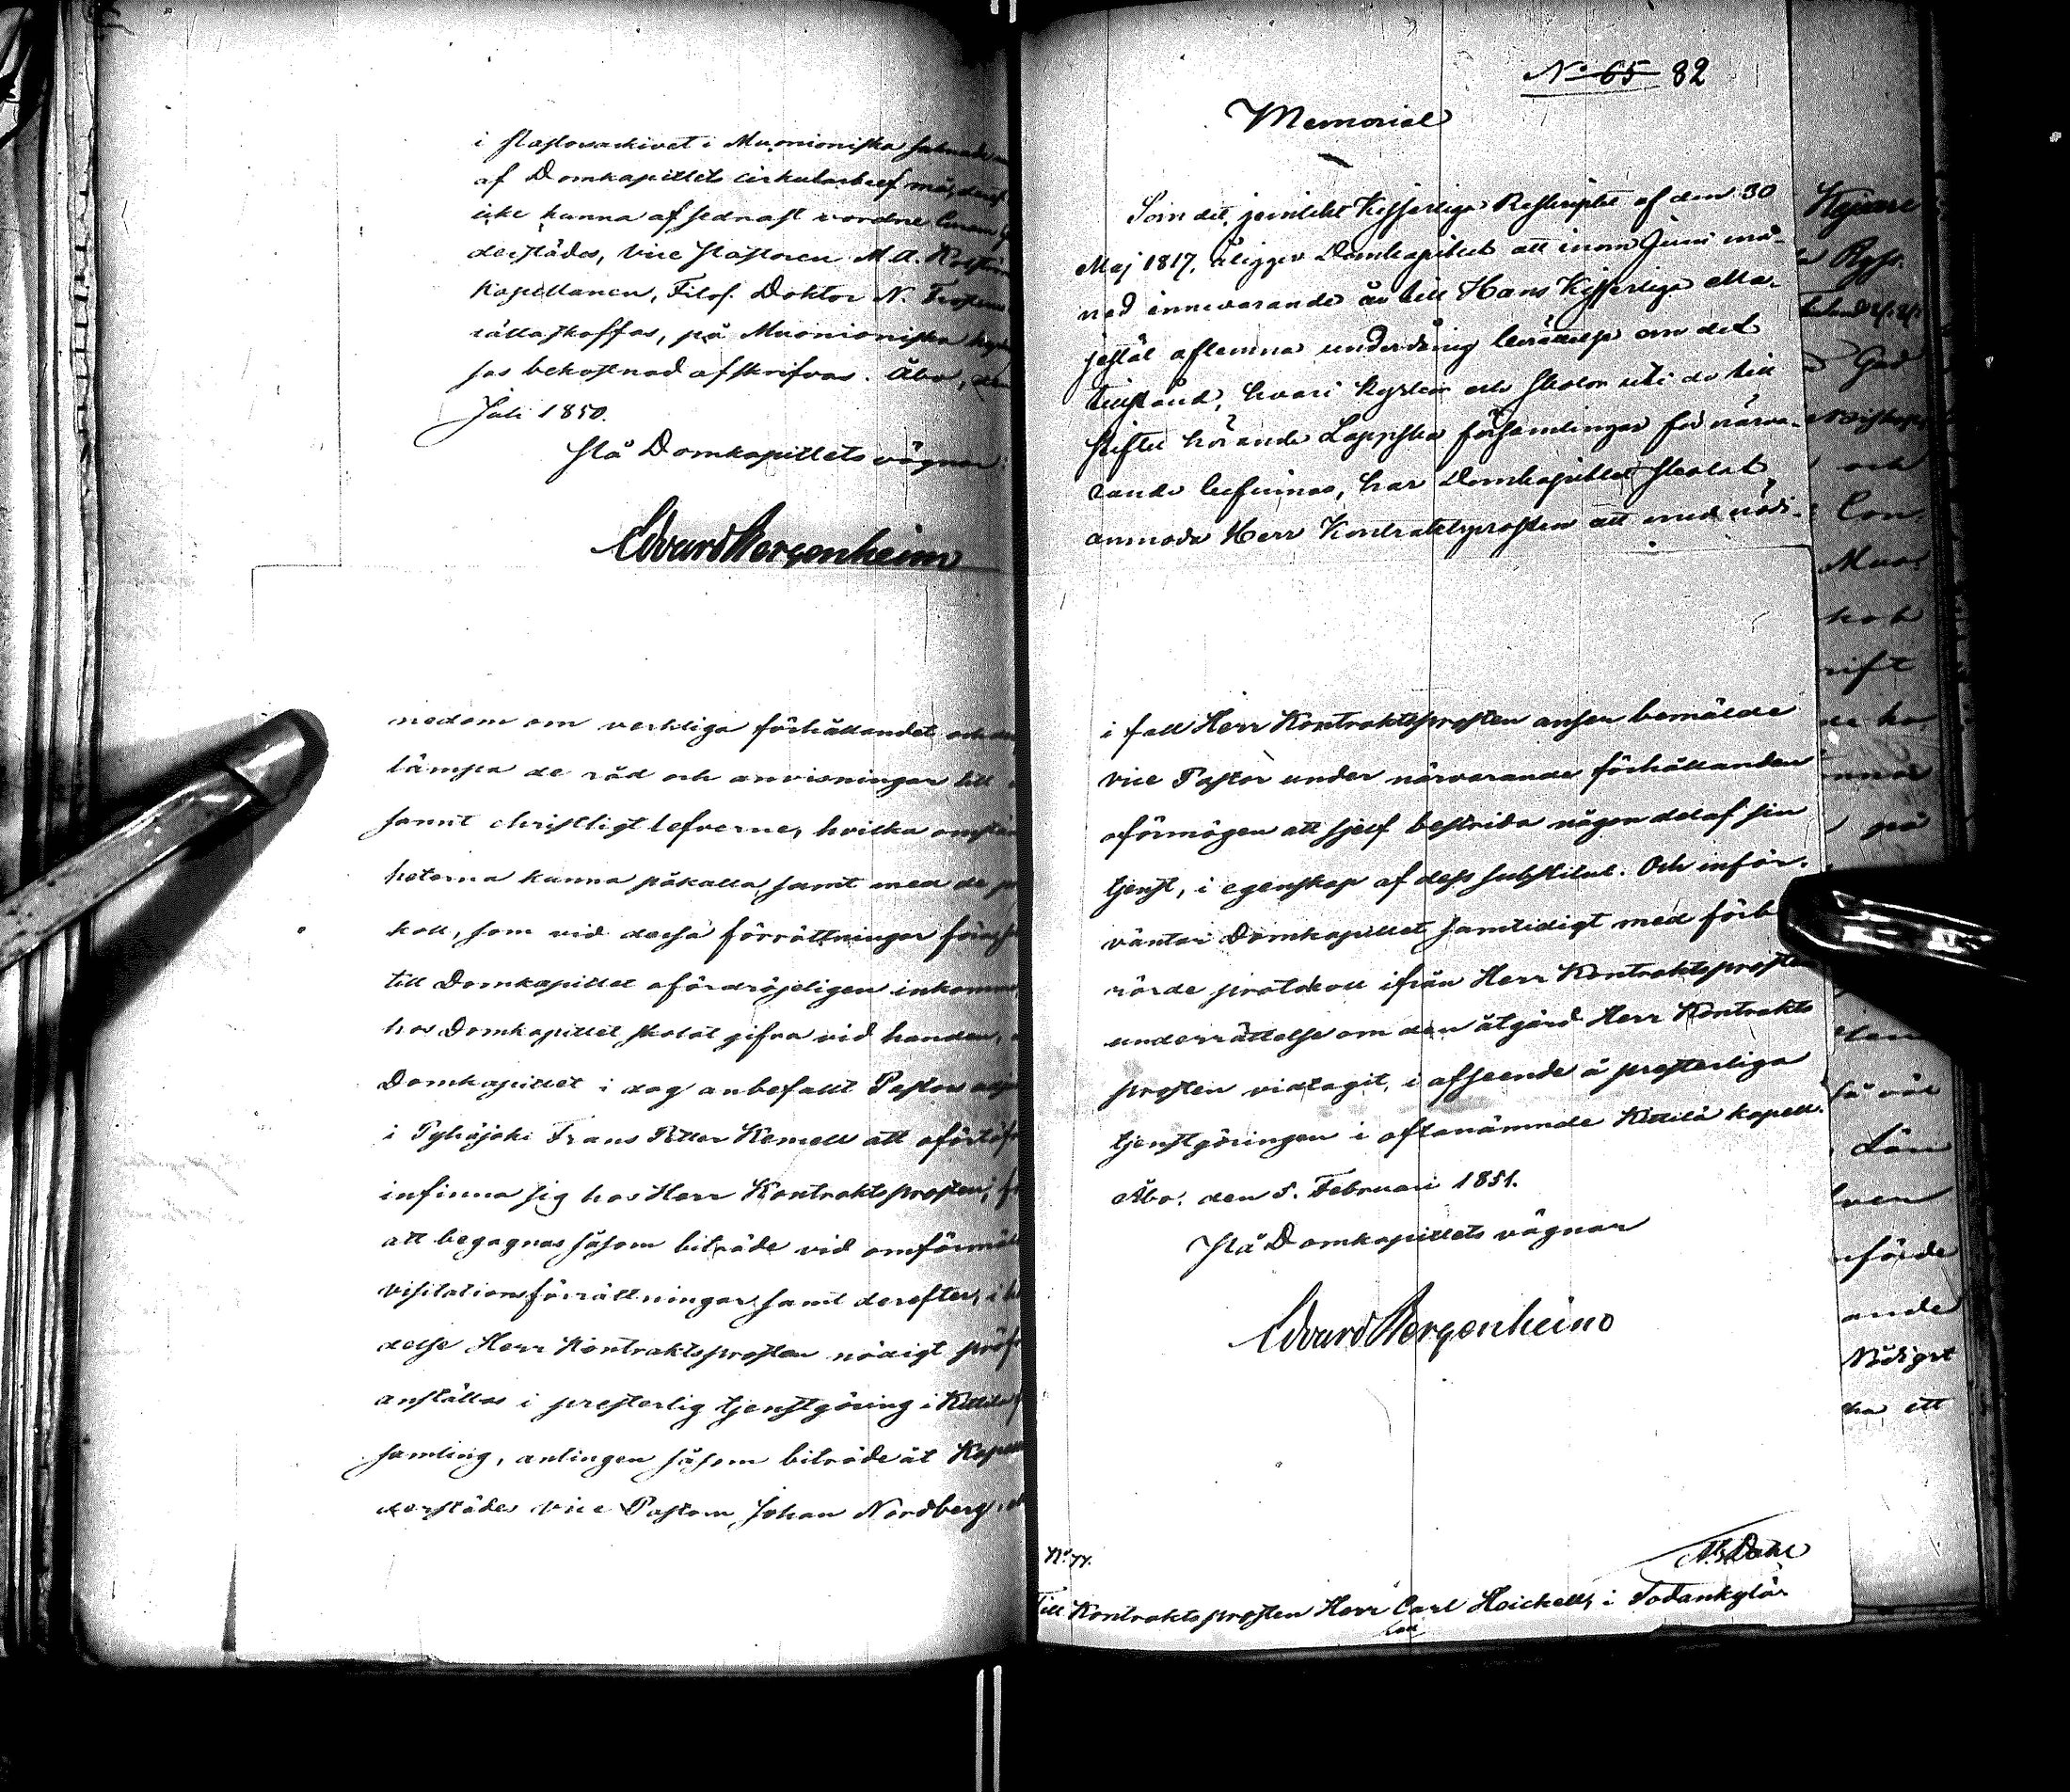 i Pastorsarkivet i Muonioniska saknade
af Domkapitlets cirkulärbref må, derest
icke kunna af sednast vordne
derstädes, Vice Pastoren M. A.
Kapellanen, Filos. Doktor N.
rättaskaffas, på Muonioniska
sas bekostnad afskrifvas. Åbo, den
Juli 1850.
På Domkapitlets vägnar:
Edvard Bergenheim
nedom om verkliga förhållandet och
lämpa de råd och anvisningar till
sannt christligt lefverne, hvilka omstän
heterna kunna påkalla, samt med de
koll, som vid dessa förrättningar föras
till Domkapitlet ofördröjeligen inkomma
hos Domkapitlet skolat gifva vid handen,
Domkapitlet i dag anbefallt Pastors
i Pyhäjoki Frans Petter Kemell att
infinna sig hos Herr Kontraktsprosten,
att begagnas såsom biträde vid omförmälde
visitationsförrättningar samt derefter, i
delse Herr Kontraktsprosten nödigt
anställas i presterlig tjenstgöring i Kittilä
samling, antingen såsom biträde åt
derstädes Vice Pastorn Johan Nordberg,
No 65 82
Memorial
Som det, jemlikt Kejserliga Reskriptet af den 30
Maj 1817, åligger Domkapitlet att inom Juni må-
nad innevarande år till Hans Kejserliga Ma-
jestät aflemna underdånig berättelse om det
tillstånd, hvari kyrkor och skolor uti de till
stiftet hörande Lappska församlingar för närva-
rande befinnas, har Domkapitlet skolat
anmoda Herr Kontraktsprosten att med nödi-
i fall Herr Kontraktsprosten anser bemälde
vice Pastor under närvarande förhållanden
oförmögen att sjelf bestrida någon del af sin
tjenst, i egenskap af dess substitut. Och inför-
väntar Domkapitlet samtidigt med förbe
rörde protokoll ifrån Herr Kontraktsprosten
underrättelse om den åtgärd Herr Kontrakts
prosten vidtagit, i afseende å presterliga
tjenstgöringen i oftanämnde Kittilä kapell.
Åbo, den 5. Februari 1851.
På Domkapitlets vägnar
Edvard Bergenheim
No 77.
Till Kontraktsprosten Herr Carl Heickell, i Sodankylä.
och
Con
Muo-
rift
på
Län
ande
Nödigt
ha ett